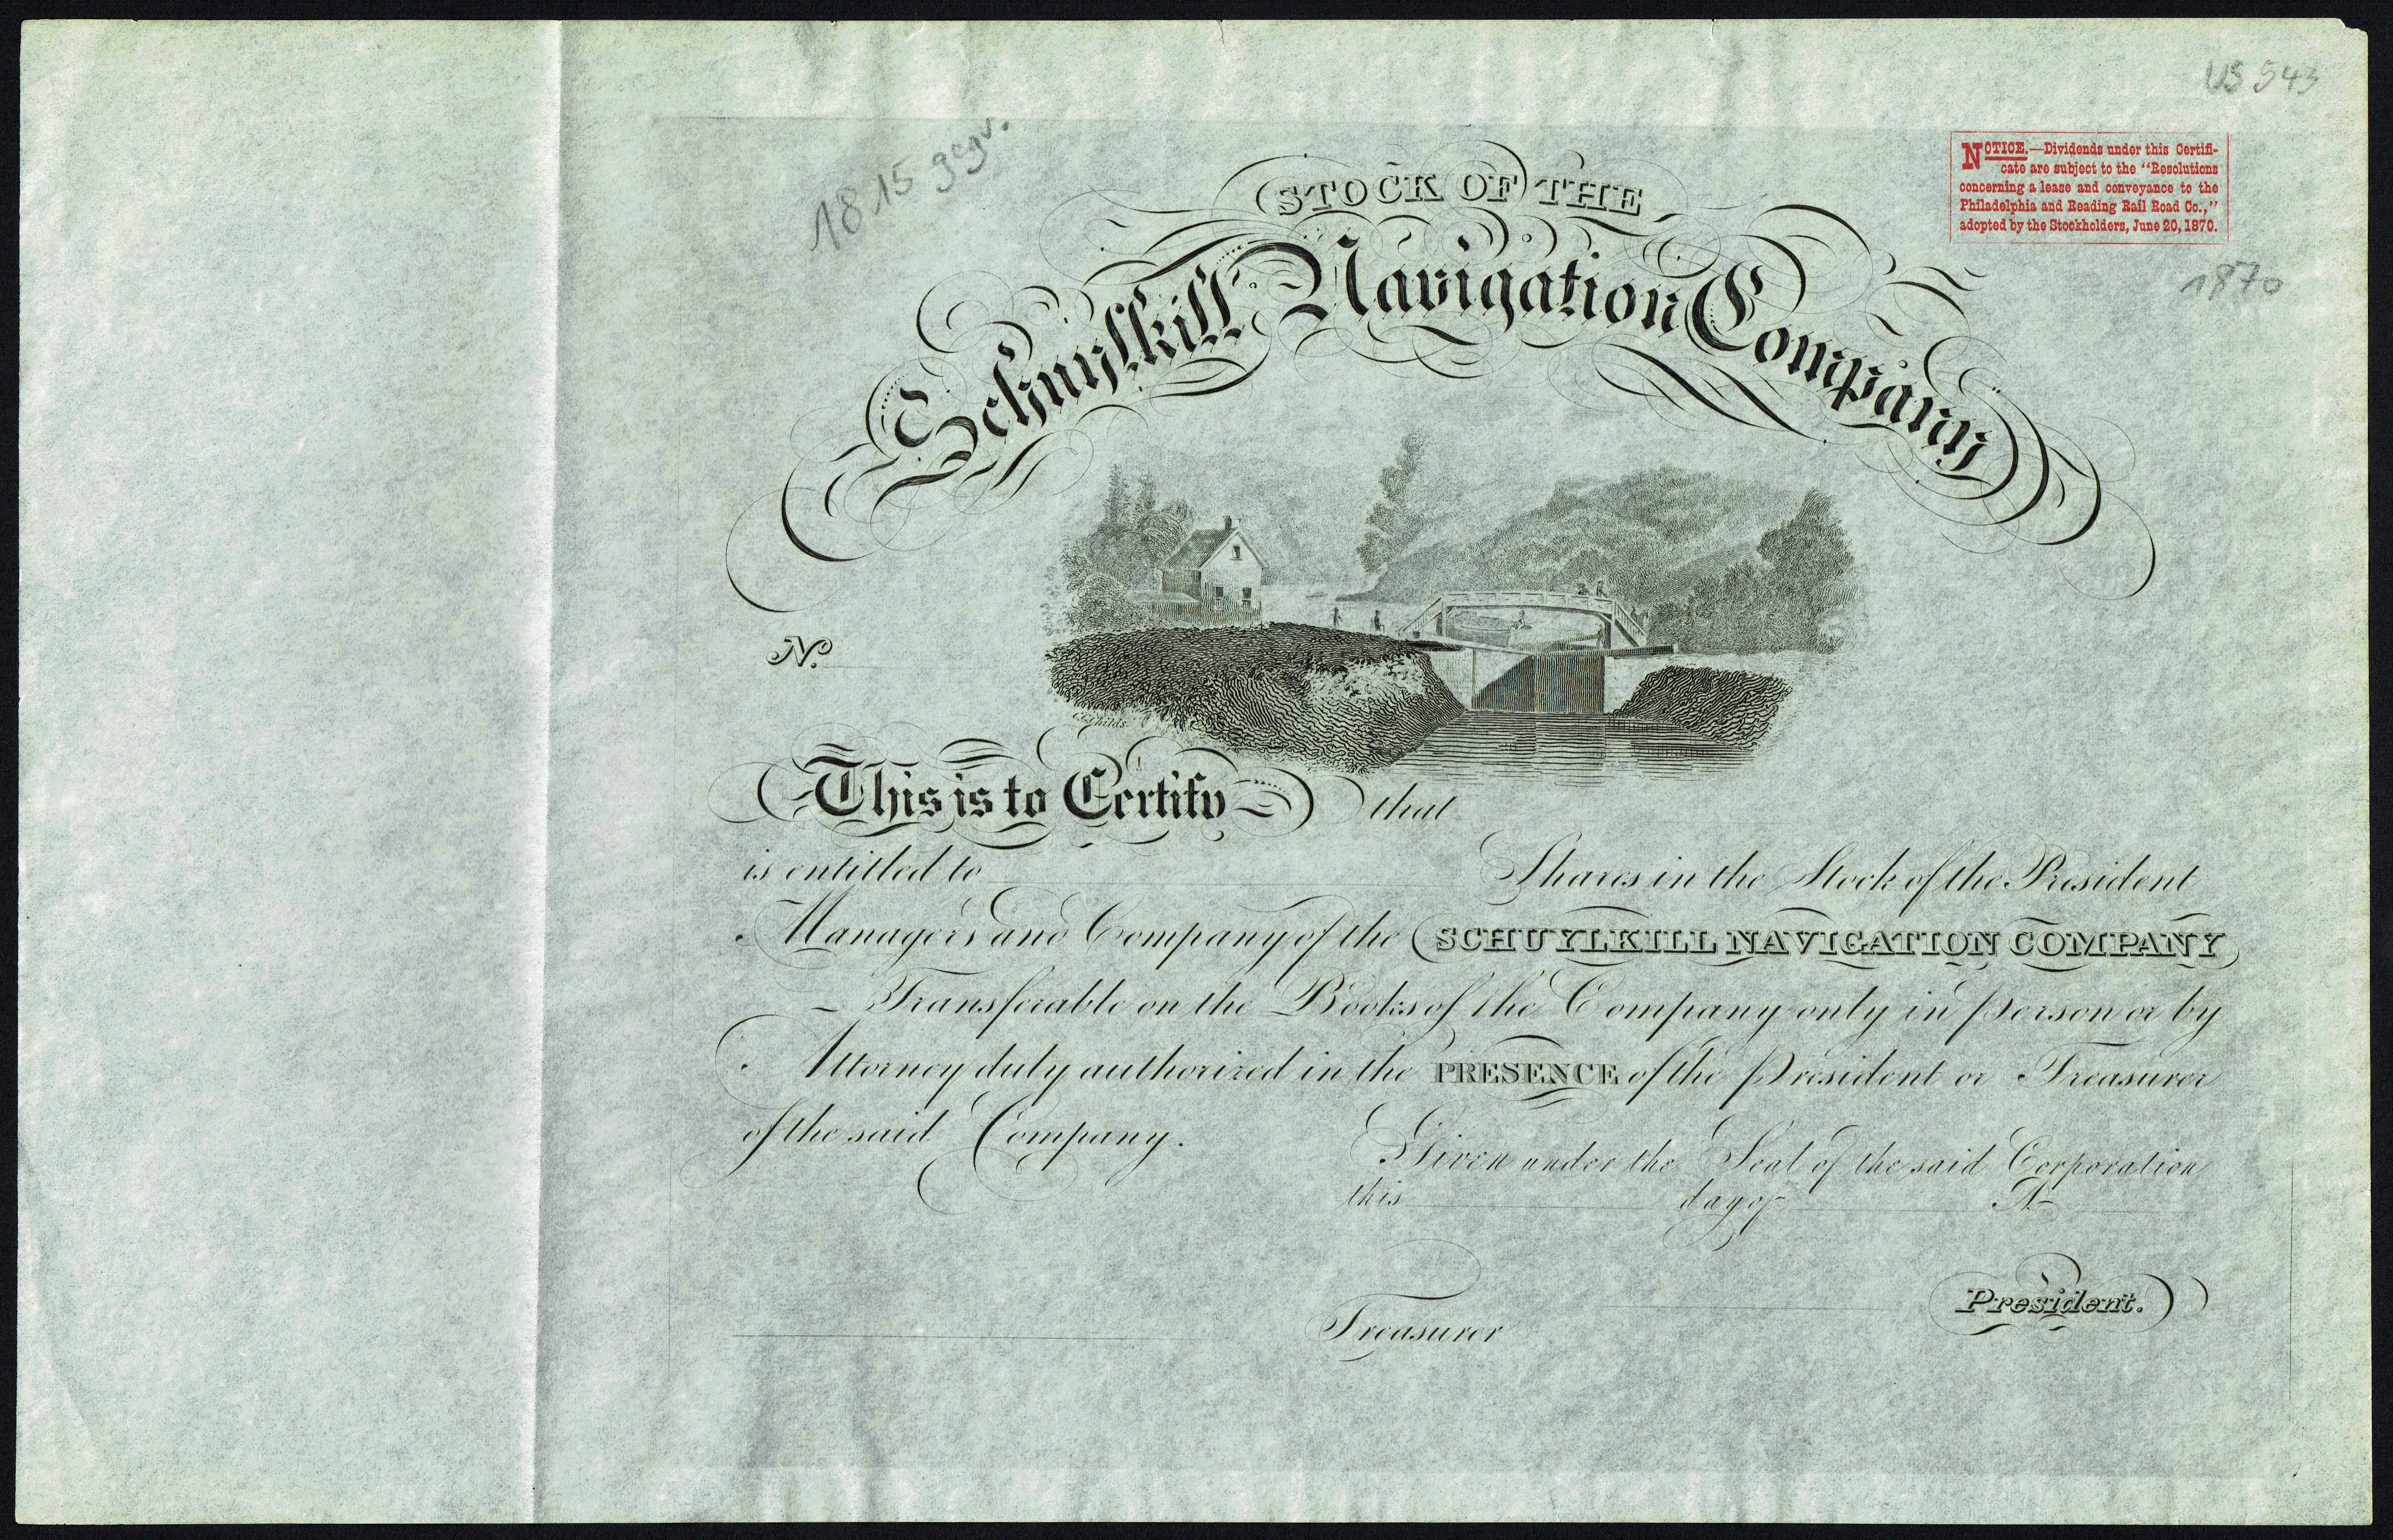 US 543
1815 gegr.
NOTICE.—Dividends under this Certifi-
cate are subject to the "Resolutions
concerning a lease and conveyance to the
Philadelphia and Reading Rail Road Co.,"
adopted by the Stockholders, June 20, 1870.
1870
STOCK OF THE
Schuylkill Navigation Company
No.
C.G. Childs
This is to Certify that
is entitled to Shares in the Stock of the President
Managers and Company of the SCHUYLKILL NAVIGATION COMPANY
Transferable on the Books of the Company only in person or by
Attorney duly authorized in the PRESENCE of the President or Treasurer
of the said Company.
Given under the Seal of the said Corporation
this day of A
President.
Treasurer